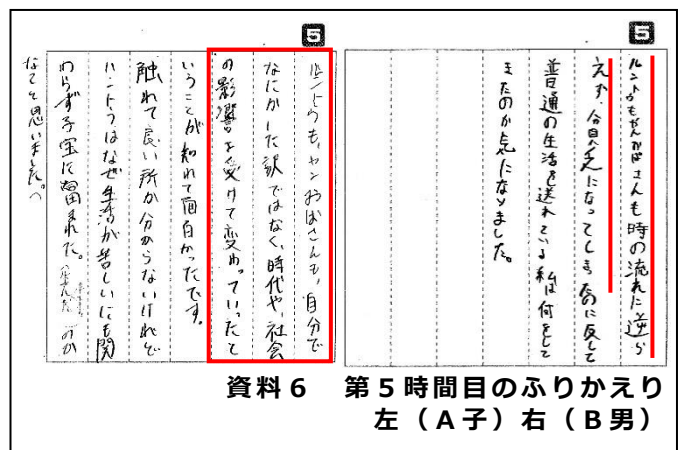 5
ルントウもヤンおばさんも時の流れに逆ら
えず、貧乏になってしまうのに反して
普通の生活を送れている私は何をして
きたのか気になりました。
5
ルントウも、ヤンおばさんも、自分で
なにかした訳ではなく、時代や、社会
の影響を受けて変わっていったと
いうことが知れて面白かったです。
触れて良い所か分からないけれど
ルントウはなぜ生活が苦しいにも関
わらず子宝に恵まれた。のか
なぁと思いました。
資料6 第5時間目のふりかえり
左(A子)右(B男)